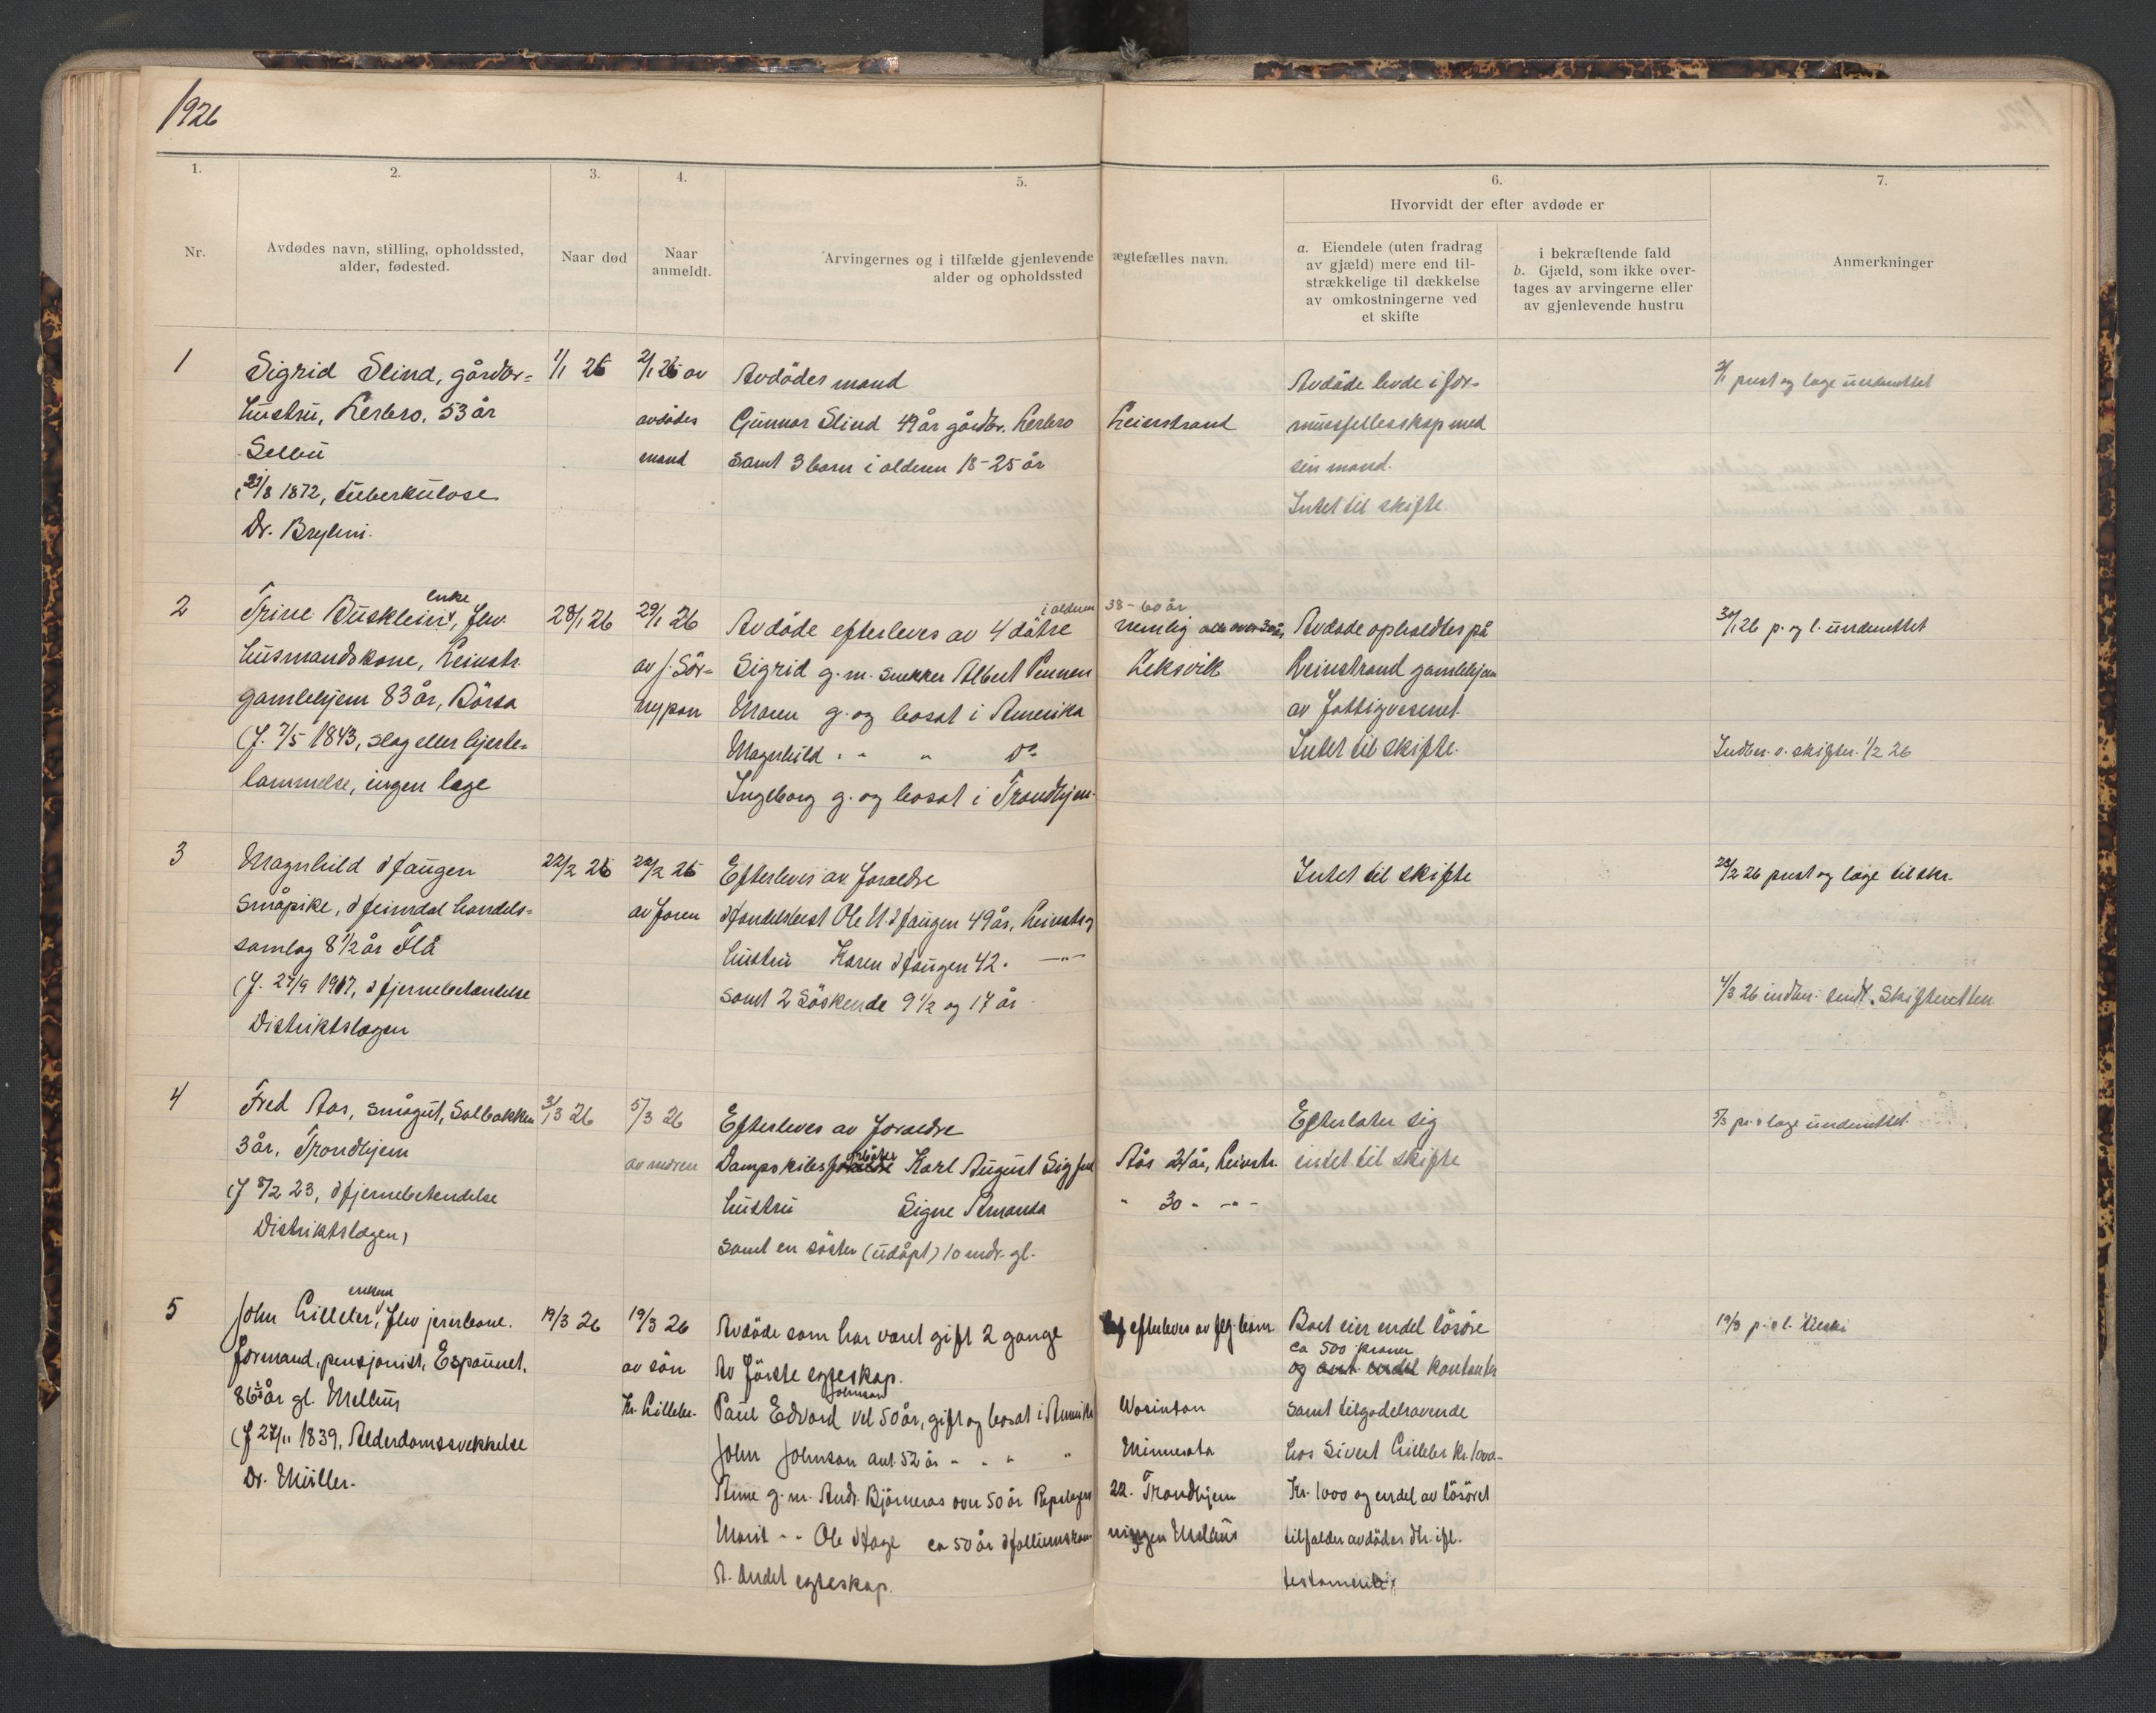 1926
1.
2.
3.
4.
5.
6.
7.
Nr.
Avdødes navn, stilling, opholdssted,
alder, fødested.
Naar død
Naar
anmeldt.
Arvingernes og i tilfælde gjenlevende ægtefælles navn.
alder og opholdssted
Hvorvidt der efter avdøde er
a. Eiendele (uten fradrag
av gjæld) mere end til-
strækkelige til dækkelse
av omkostningerne ved
et skifte
i bekræftende fald
b. Gjæld, som ikke over-
tages av arvingerne eller
av gjenlevende hustru
Anmerkninger
1
Sigrid Slind, gårdbr=
hustru, Lerbro, 53 år
Selbu
21/8 1872, tuberkulose
Dr. Bryhni.
1/1 26
2/1 26 av
avdødes
mand
Avdødes mand
Gunnar Slind 49 år gårdbr. Lerbro Leinstrand
samt 3 barn i alderen 18-25 år
Avdøde levde i for-
muesfellesskap med
sin mand.
Intet til skifte.
2/1 prest og læge underrettet
2
enke
Trine Busklein, flv.
husmandskone, Leinstr.
gamlehjem 83 år, Börsa
(f. 7/5 1843, slag eller hjerte=
lammelse, ingen læge
28/1 26
29/1 26
av J. Sör=
nypan
i alderen 38-60 år
Avdøde efterleves av 4 døtre nemlig
Sigrid g.m. snekker Albert Leksvik
Maren g. og bosat i Amerika
Magnhild " " " do
Ingeborg g. og bosat i Trondhjem.
Avdøde opholdtes på
Leinstrand gamlehjem
av Fattigvesenet.
Intet til skifte.
30/1 26 p. og l. underrettet
Indber. o. skifter. 1/2 26
3
Magnhild Haugen
småpike, Heimdal handels=
samlag 8 1/2 år Flå
(f. 27/9 1917, Hjernebetendelse
Distriktslægen
22/2 26
22/2 26
av faren
Efterleves av foreldre
Handelsbest Ole N. Haugen 49 år, Leinstr og
hustru Karen Haugen 42. —"—
samt 2 söskende 9 1/2 og 17 år
Intet til skifte
23/2 26 prest og læge tilskr.
4/3 26 indber. sendt Skifteretten
4
Fred Aas, smågut, Solbakken
3 år, Trondhjem
(f 8/2 23, Hjernebetendelse
Distriktslægen)
3/3 26
5/3 26
av moren
Efterleves av foreldre
arbeider
Karl August Sigfred Aas 24 år, Leinstr.
hustru Signe Amanda " 30 " —"—
samt en söster (udöpt) 10 mdr. gl.
Efterlater sig
intet til skifte
5/3 pr. o læge underrettet.
5
enkem.
John Lilleler, flv jernbane.
formand, pensjonist, Espaunet,
86 år gl. Melhus
(f 27/11 1839, Alderdomssvekkelse
Dr. Müller.
19/3 26
19/3 26
av sön
Kr. Lilleler.
Avdøde som har været gift 2 gange efterleves av flg. barn
Av første egteskap.
Johnson
Paul Edvard vel 50 år, gift og bosat i Amerika Wosinton
John Johnson ant. 52 år " " " " Minnesota
Anne g.m. Andr. Bjørnerås over 50 år 22. Trondhjem
Marit " " Ole Hage ca 50 år Melhus
A. Andet egteskap.
Boet eier endel lösöre
ca 500 kroner
og kontanter
samt tilgodehavende
hos Sivert Lilleler kr. 1000-
Kr. 1000 og endel av lösöret
tilfalder avdødes dtr. ifl.
testamente
19/3 p. o l.